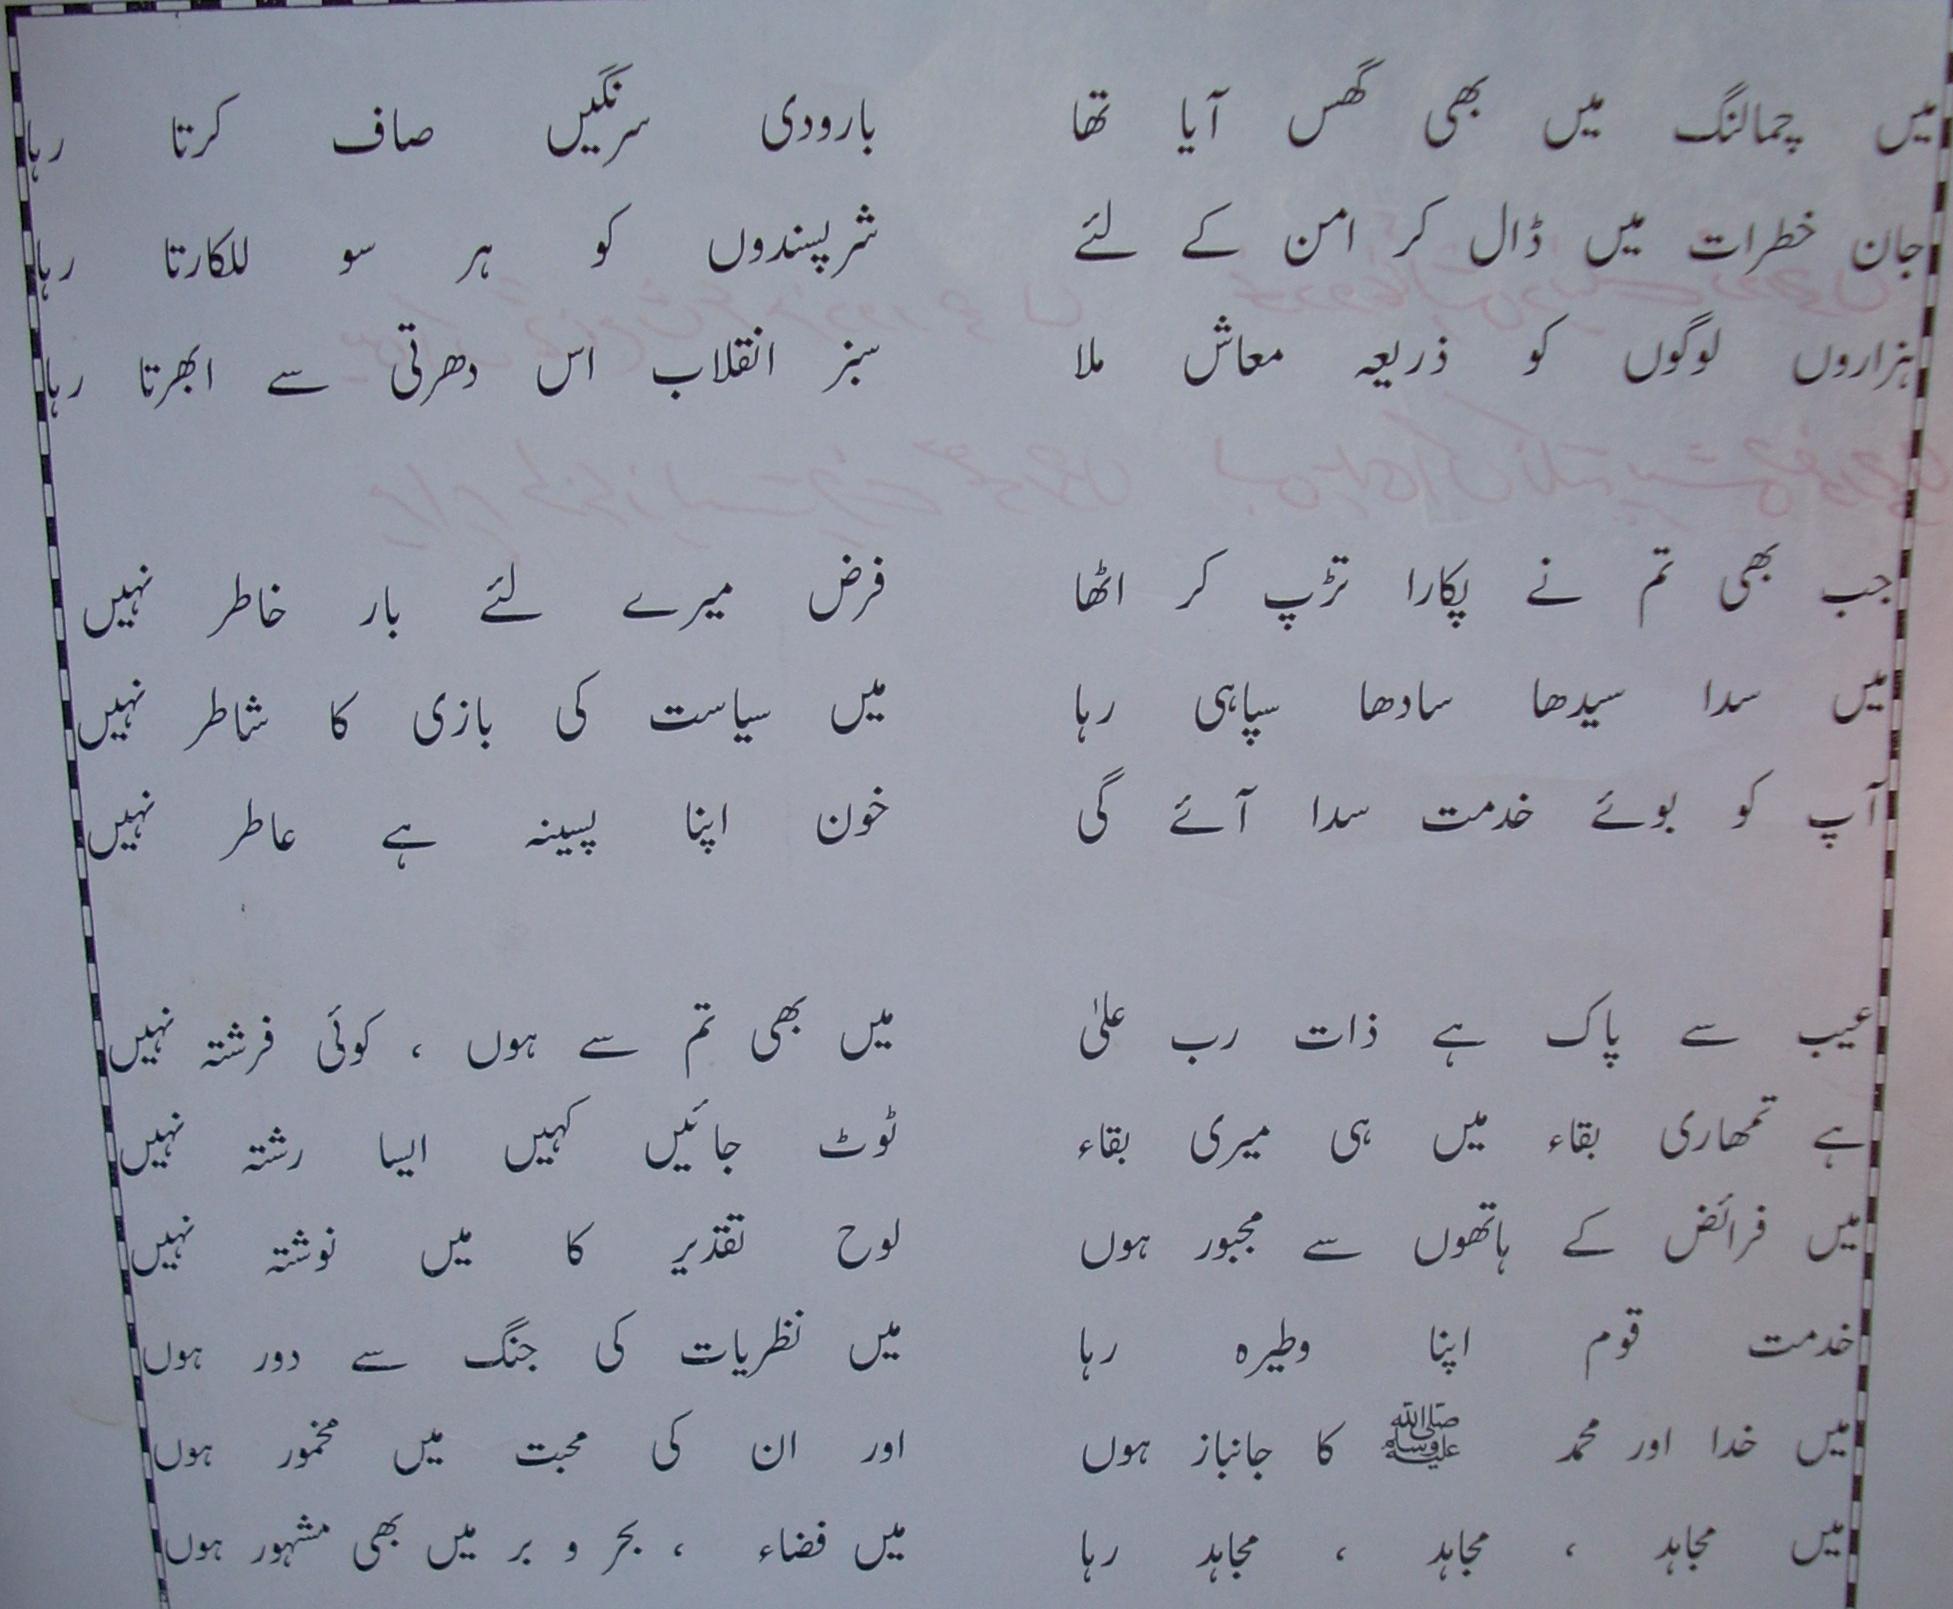 میں چمالنگ میں بھی گھس آیا تھا بارودی سرنگیں صاف کرتا رہا
جان خطرات میں ڈال کر امن کے لئے شرپسندوں کو ہر سو للکارتا رہا
ہزاروں لوگوں کو ذریعہ معاش ملا سبز انقلاب اس دھرتی سے ابھرتا رہا
جب بھی تم نے پکارا تڑپ کر اٹھا فرض میرے لئے بار خاطر نہیں
میں سدا سیدھا سادھا سپاہی رہا میں سیاست کی بازی کا شاطر نہیں
آپ کو بوئے خدمت سدا آئے گی خون اپنا پسینہ ہے عاطر نہیں
عیب سے پاک ہے ذات رب علیٰ میں بھی تم سے ہوں ، کوئی فرشتہ نہیں
ہے تمھاری بقاء میں ہی میری بقاء ٹوٹ جائیں کہیں ایسا رشتہ نہیں
میں فرائض کے ہاتھوں سے مجبور ہوں لوح تقدیر کا میں نوشتہ نہیں
خدمت قوم اپنا وطیرہ رہا میں نظریات کی جنگ سے دور ہوں
میں خدا اور محمد ﷺ کا جانباز ہوں اور ان کی محبت میں مخمور ہوں
میں مجاہد ، مجاہد ، مجاہد رہا میں فضاء ، بحر و بر میں بھی مشہور ہوں